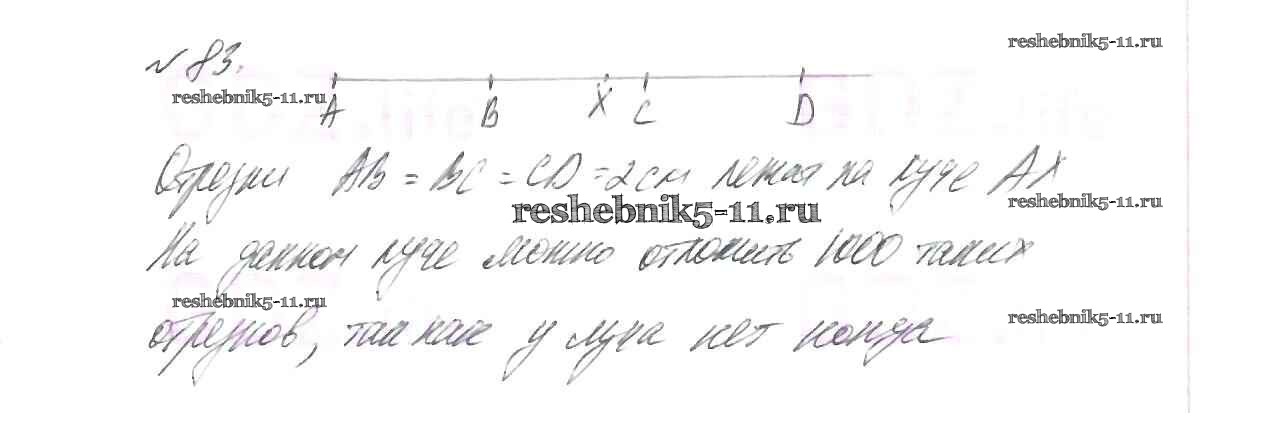 № 83.
reshebnik5-11.ru
reshebnik5-11.ru
A B X C D
Отрезки AB = BC = CD = 2см лежат на луче AX
reshebnik5-11.ru
reshebnik5-11.ru
На данном луче можно отложить 1000 таких
reshebnik5-11.ru
reshebnik5-11.ru
отрезков, так как у луча нет конца